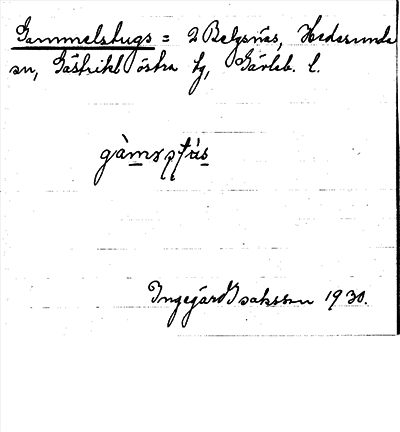 Gammelstugs = 2 Belgsnäs, Hedesunda
sn, Gästrikl östra tg, Gävleb. l.
Ingegärd Isaksson 1930.